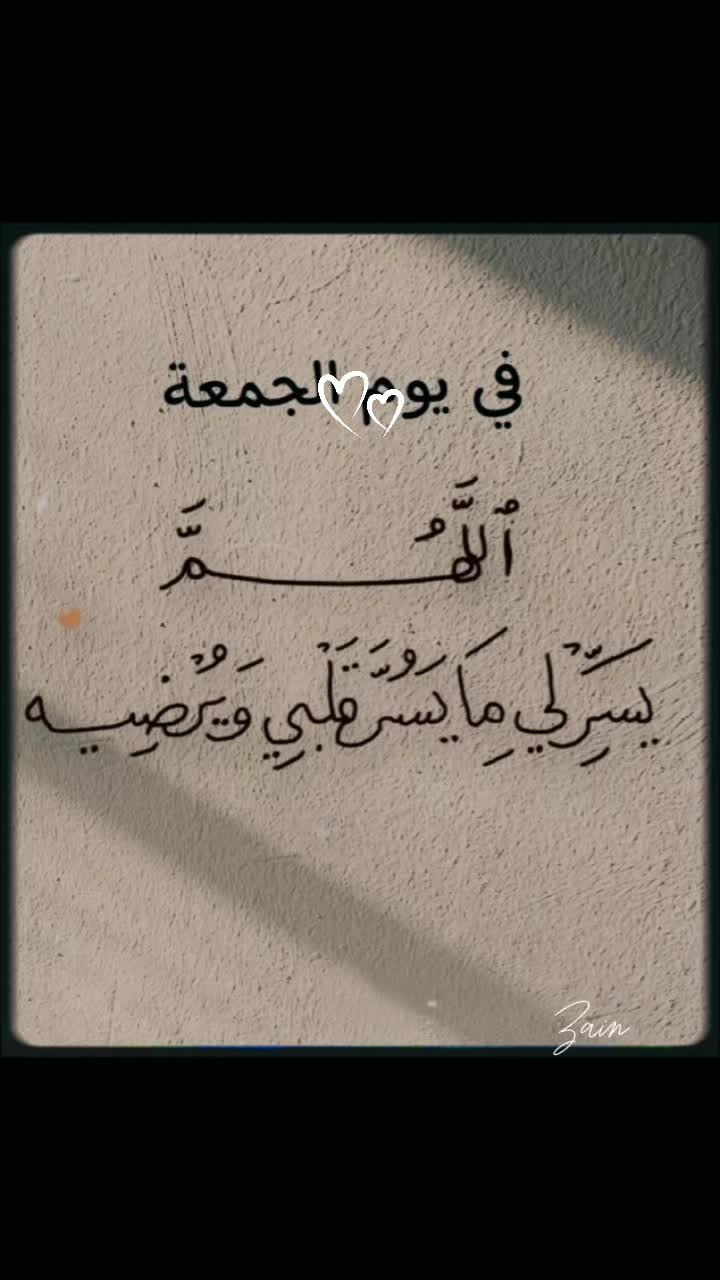 في يوم الجمعة
ٱللَّهُمَّ
يَسِّرْ لِي مَا يَسُرُّ قَلْبِي وَيُرْضِيه
Zain